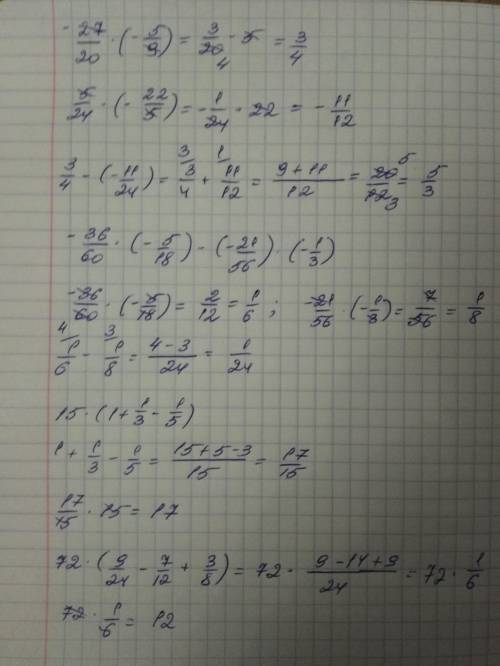 -27/20 · (-5/9) = 3/20 · 5 = 3/4
4
5/24 · (-22/5) = -1/24 · 22 = -11/12
3 1 5
3/4 - (-11/24) = 3/4 + 11/12 = 9+11/12 = 20/12 = 5/3
3
-36/60 · (-5/18) - (-21/56) · (-1/3)
-36/60 · (-5/18) = 2/12 = 1/6 ; -21/56 · (-1/3) = 7/56 = 1/8
4 3
1/6 - 1/8 = 4-3/24 = 1/24
15 · (1+1/3 - 1/5)
1 + 1/3 - 1/5 = 15+5-3/15 = 17/15
17/15 · 15 = 17
72 · (9/24 - 7/12 + 3/8) = 72 · 9-14+9/24 = 72 · 1/6
72 · 1/6 = 12